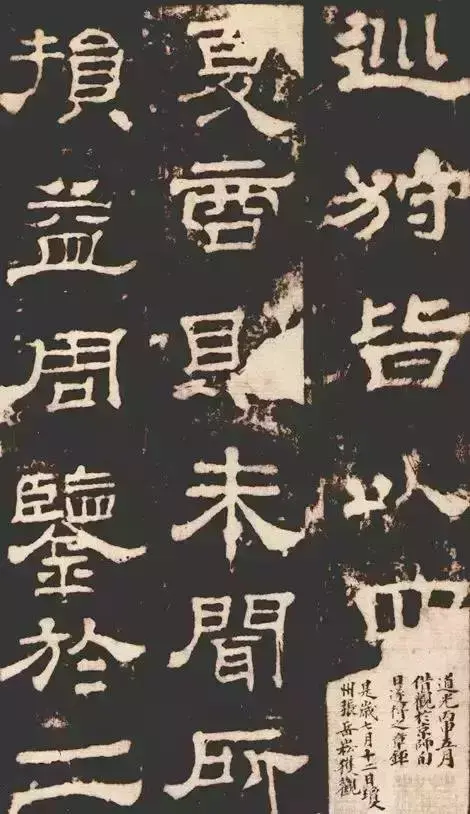 巡狩皆以四
夏商則未聞所
損益周鑒於二
道光丙申五月
借觀於京師旬
日遂得之章鉅
是歲七月十二日瓊
州張岳崧獲觀